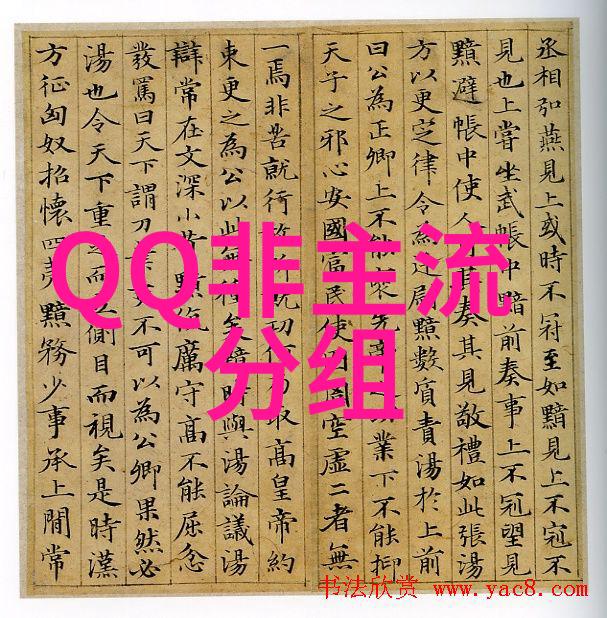 丞相弘燕見上或時不冠至如黯見上不冠不
見也上嘗坐武帳中黯前奏事上不冠望見
黯避帳中使人其奏其見敬禮如此張湯
方以更定律令為廷尉黯數質責湯於上前
曰公為正卿上不能褒先帝業下不能抑
天子之邪心安國富民使囹圄空虛二者無
一焉非苦就行放析就功何乃取高皇帝約
束更之為公以此無種矣黯時與湯論議湯
辯常在文深小苛黯伉厲守高不能屈忿
發罵曰天下謂刀吏不可以為公卿果然必
湯也令天下重足而立側目而視矣是時漢
方征匈奴招懷四夷黯務少事承上間常
QQ非主流
分组
书法欣赏 www.yac8.com